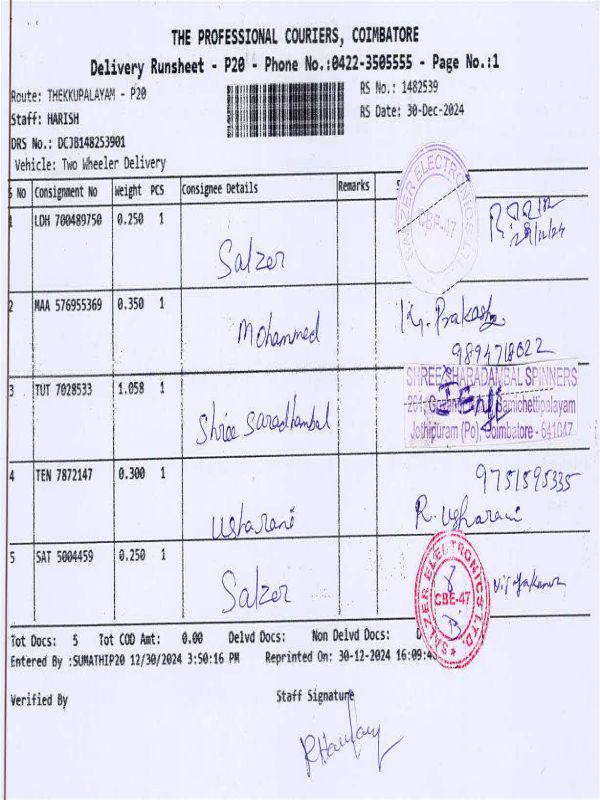 THE PROFESSIONAL COURIERS, COIMBATORE
Delivery Runsheet - P20 - Phone No.:0422-3505555 - Page No.:1
Route: THEKKUPALAYAM - P20
RS No.: 1482539
Staff: HARISH
RS Date: 30-Dec-2024
DRS No.: DCJB148253901
Vehicle: Two Wheeler Delivery
S No Consignment No Weight PCS Consignee Details Remarks S
1 LDH 700489750 0.250 1 Salzer
SALZER ELECTRONICS LTD CBE-47
2 MAA 576955369 0.350 1 Mohammed Prakash
9894718622
3 TUT 7028533 1.058 1 Shree Saradhambal
SHREE SHARADAMBAL SPINNERS
Samichettipalayam
Jothipuram (Po), Coimbatore - 641047
4 TEN 7872147 0.300 1 Usharani 9751595335
R. Usharani
5 SAT 5004459 0.250 1 Salzer Vijayakumar
SALZER ELECTRONICS LTD. CBE-47
Tot Docs: 5 Tot COD Amt: 0.00 Delvd Docs: Non Delvd Docs:
Entered By :SUMATHIP20 12/30/2024 3:50:16 PM Reprinted On: 30-12-2024 16:09:4
Verified By Staff Signature